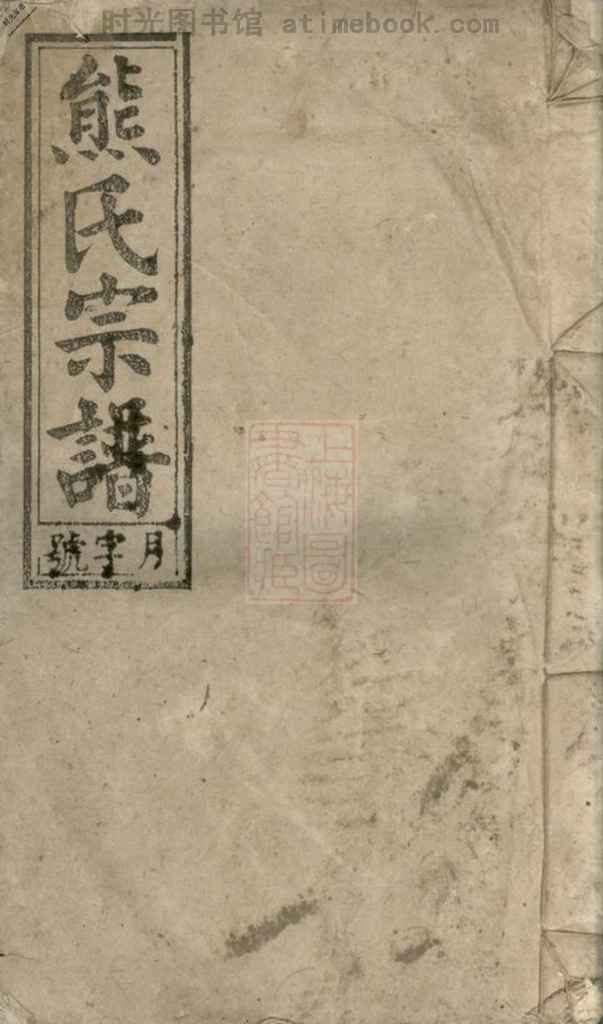 时光图书馆 atimebook.com
熊氏宗譜
月字號
上海圖
書館藏